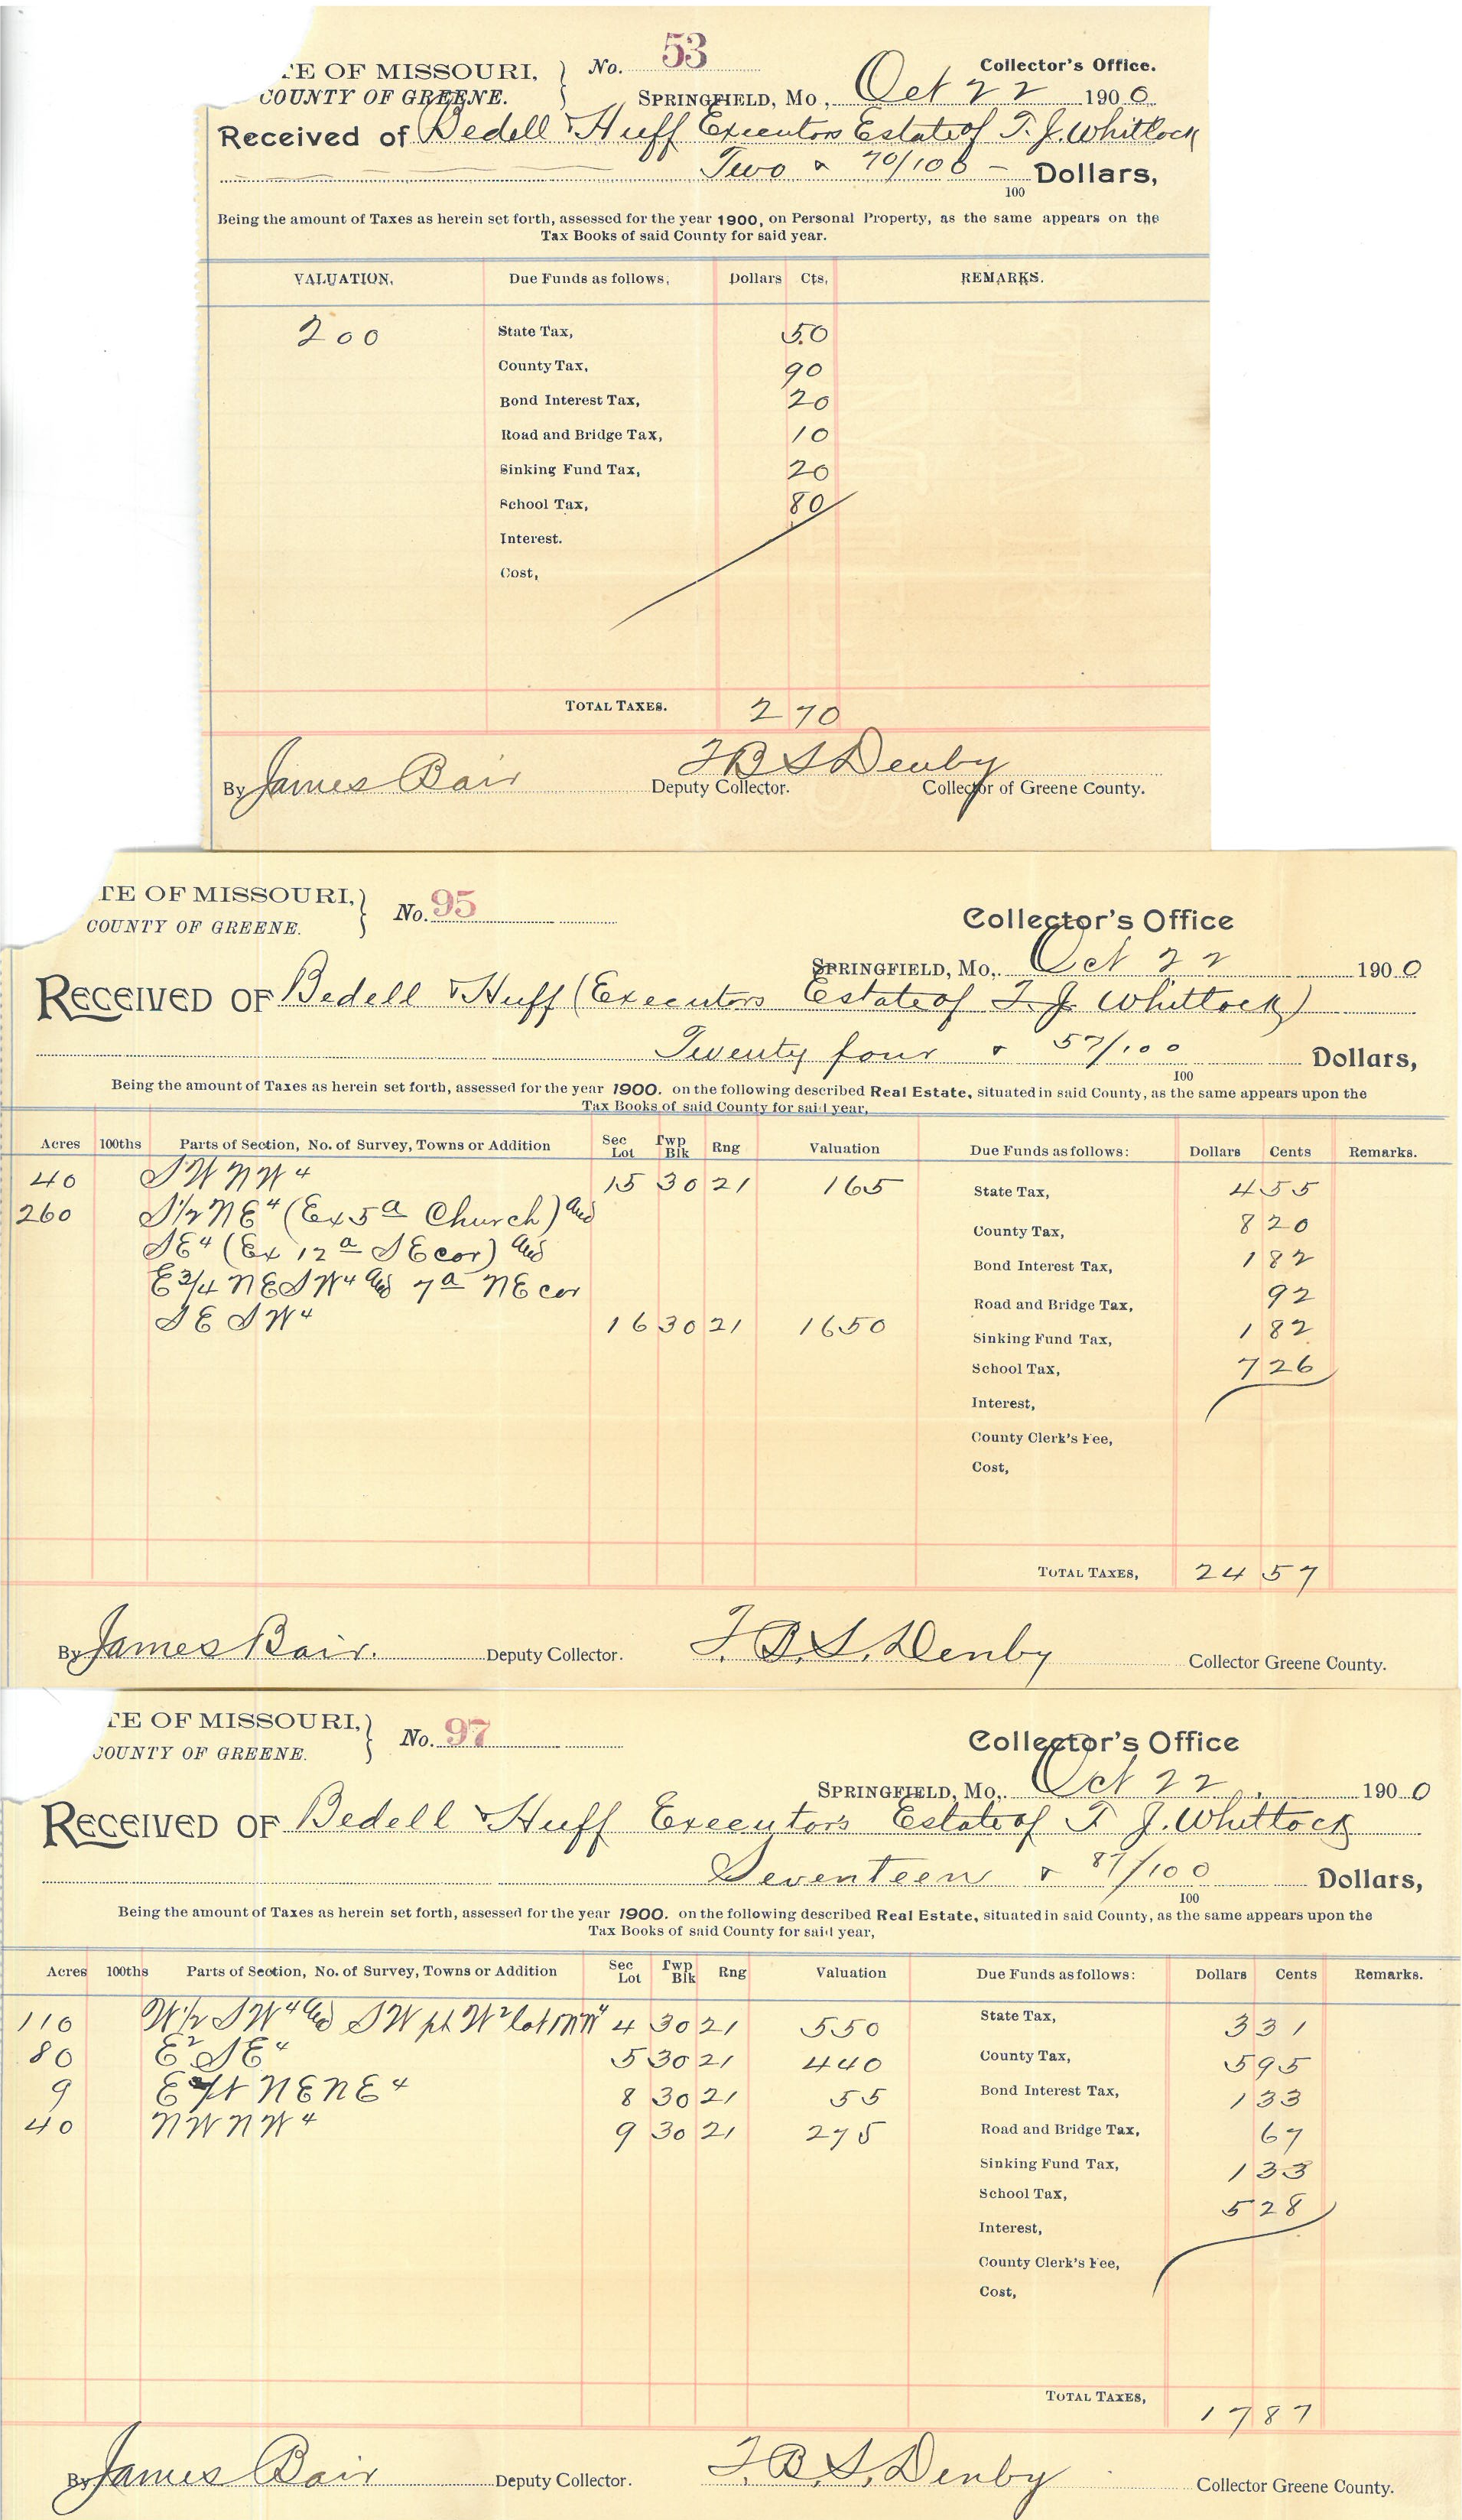 TE OF MISSOURI, } No. 53 Collector's Office.
COUNTY OF GREENE. SPRINGFIELD, Mo, Oct 22 1900
Received of Bedell & Huff Executors Estate of T. J. Whitlock
Two & 70/100 — 100 Dollars,
Being the amount of Taxes as herein set forth, assessed for the year 1900, on Personal Property, as the same appears on the
Tax Books of said County for said year.
VALUATION. Due Funds as follows, Dollars Cts, REMARKS.
200 State Tax, 50
County Tax, 90
Bond Interest Tax, 20
Road and Bridge Tax, 10
Sinking Fund Tax, 20
School Tax, 80
Interest.
Cost,
TOTAL TAXES. 2 70
By James Bair Deputy Collector. F B S Denby Collector of Greene County.
TE OF MISSOURI, } No. 95 Collector's Office
COUNTY OF GREENE. SPRINGFIELD, Mo,. Oct 22 1900
RECEIVED OF Bedell & Huff (Executors Estate of T. J. Whitlock)
Twenty four & 57/100 100 Dollars,
Being the amount of Taxes as herein set forth, assessed for the year 1900. on the following described Real Estate, situated in said County, as the same appears upon the
Tax Books of said County for said year,
Acres 100ths Parts of Section, No. of Survey, Towns or Addition Sec Lot Twp Blk Rng Valuation Due Funds as follows: Dollars Cents Remarks.
40 SW NW 4 15 30 21 165 State Tax, 4 55
260 S1/2 NE 4 (Ex 5 a Church) and County Tax, 8 20
SE 4 (Ex 12 a SE cor) and Bond Interest Tax, 1 82
E 3/4 NE SW 4 and 7 a NE cor Road and Bridge Tax, 92
SE SW 4 16 30 21 1650 Sinking Fund Tax, 1 82
School Tax, 7 26
Interest,
County Clerk's Fee,
Cost,
TOTAL TAXES, 24 57
By James Bair. Deputy Collector. F. B. S. Denby Collector Greene County.
TE OF MISSOURI, } No. 97 Collector's Office
COUNTY OF GREENE. SPRINGFIELD, Mo,. Oct 22, 1900
RECEIVED OF Bedell & Huff Executors Estate of T J. Whitlock
Seventeen & 87/100 100 Dollars,
Being the amount of Taxes as herein set forth, assessed for the year 1900. on the following described Real Estate, situated in said County, as the same appears upon the
Tax Books of said County for said year,
Acres 100ths Parts of Section, No. of Survey, Towns or Addition Sec Lot Twp Blk Rng Valuation Due Funds as follows: Dollars Cents Remarks.
110 W1/2 SW 4 and SW pt W 2 lot 1 NW 4 4 30 21 550 State Tax, 3 31
80 E 2 SE 4 5 30 21 440 County Tax, 5 95
9 NE NE 4 8 30 21 55 Bond Interest Tax, 1 33
40 NW NW 4 9 30 21 275 Road and Bridge Tax, 67
Sinking Fund Tax, 1 33
School Tax, 5 28
Interest,
County Clerk's Fee,
Cost,
TOTAL TAXES, 17 87
By James Bair Deputy Collector. F. B. S. Denby Collector Greene County.